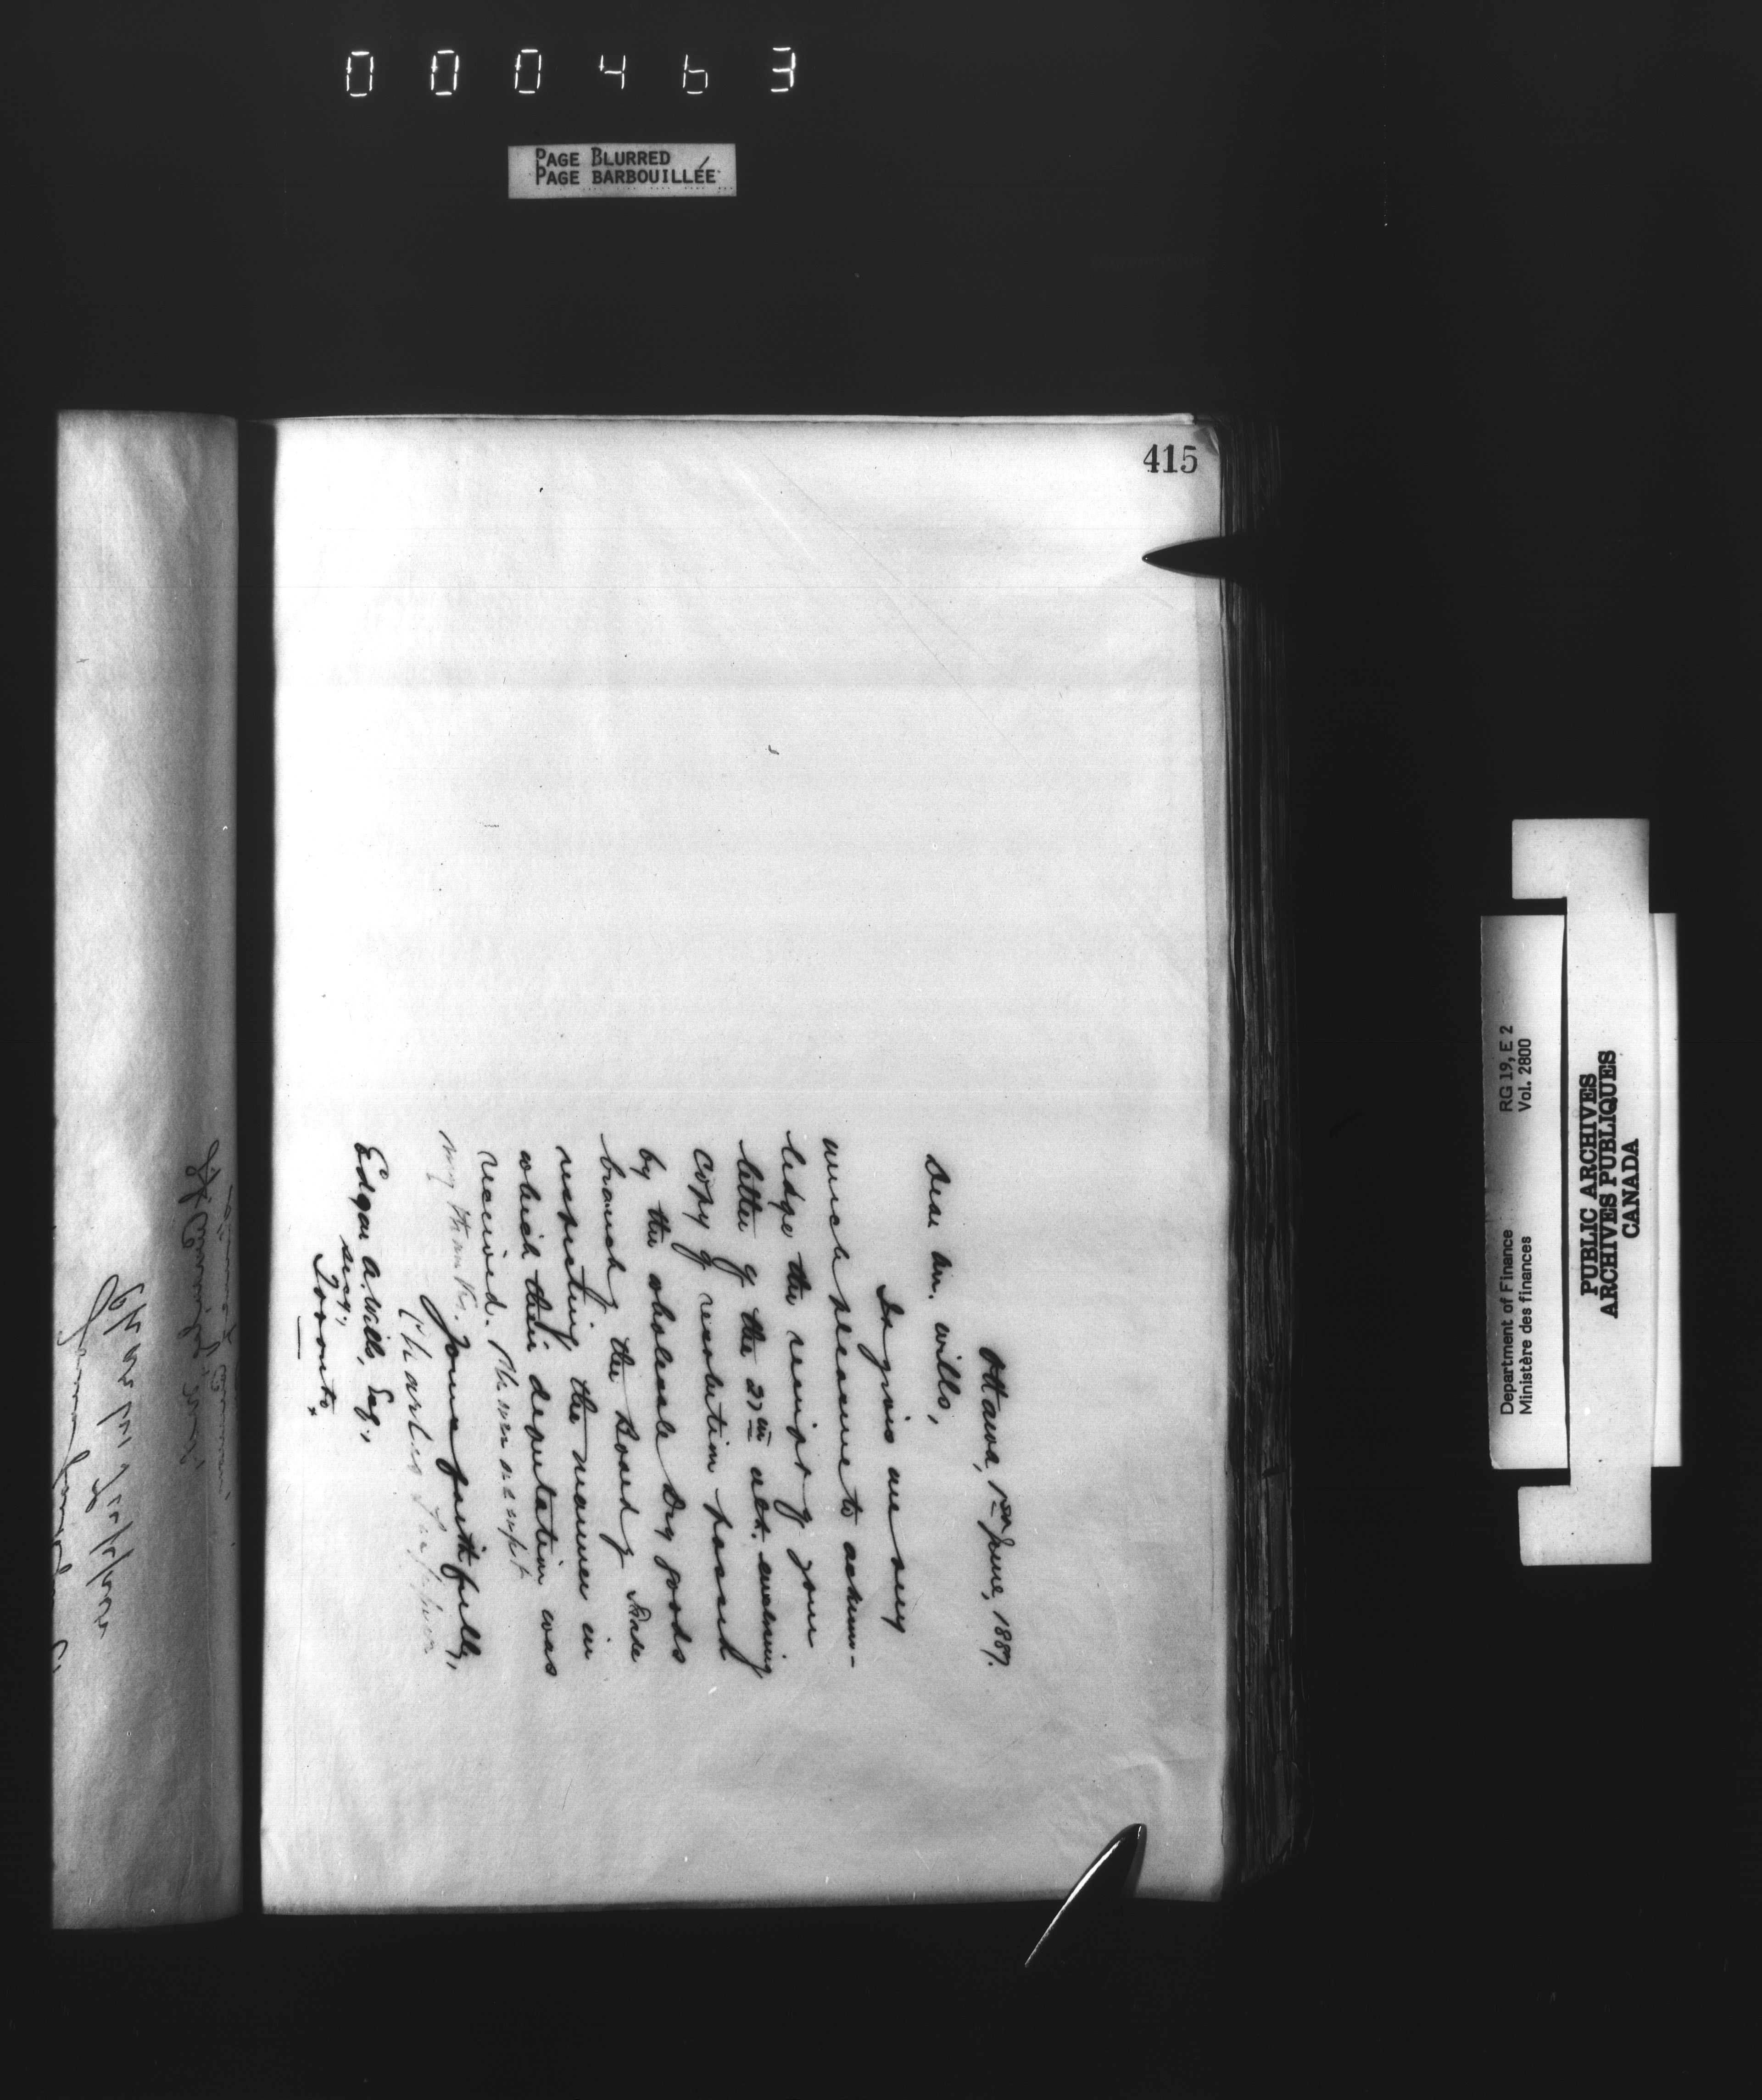 000463
PAGE BLURRED
PAGE BARBOUILLÉE
415
Ottawa, 1st June, 1887.
Dear Mr. Wills,
It gives me very
much pleasure to acknow-
ledge the receipt of your
letter of the 27th ult. enclosing
copy of resolution passed
by the wholesale Dry goods
branch of the Board of Trade
respecting the manner in
which their deputation was
received. Please accept
my thanks.
Yours faithfully,
Charles Tupper
Edgar A. Wills, Esq.,
Secy.,
Toronto
Department of Finance
Ministère des finances
RG 19, E 2
Vol. 2800
PUBLIC ARCHIVES
ARCHIVES PUBLIQUES
CANADA